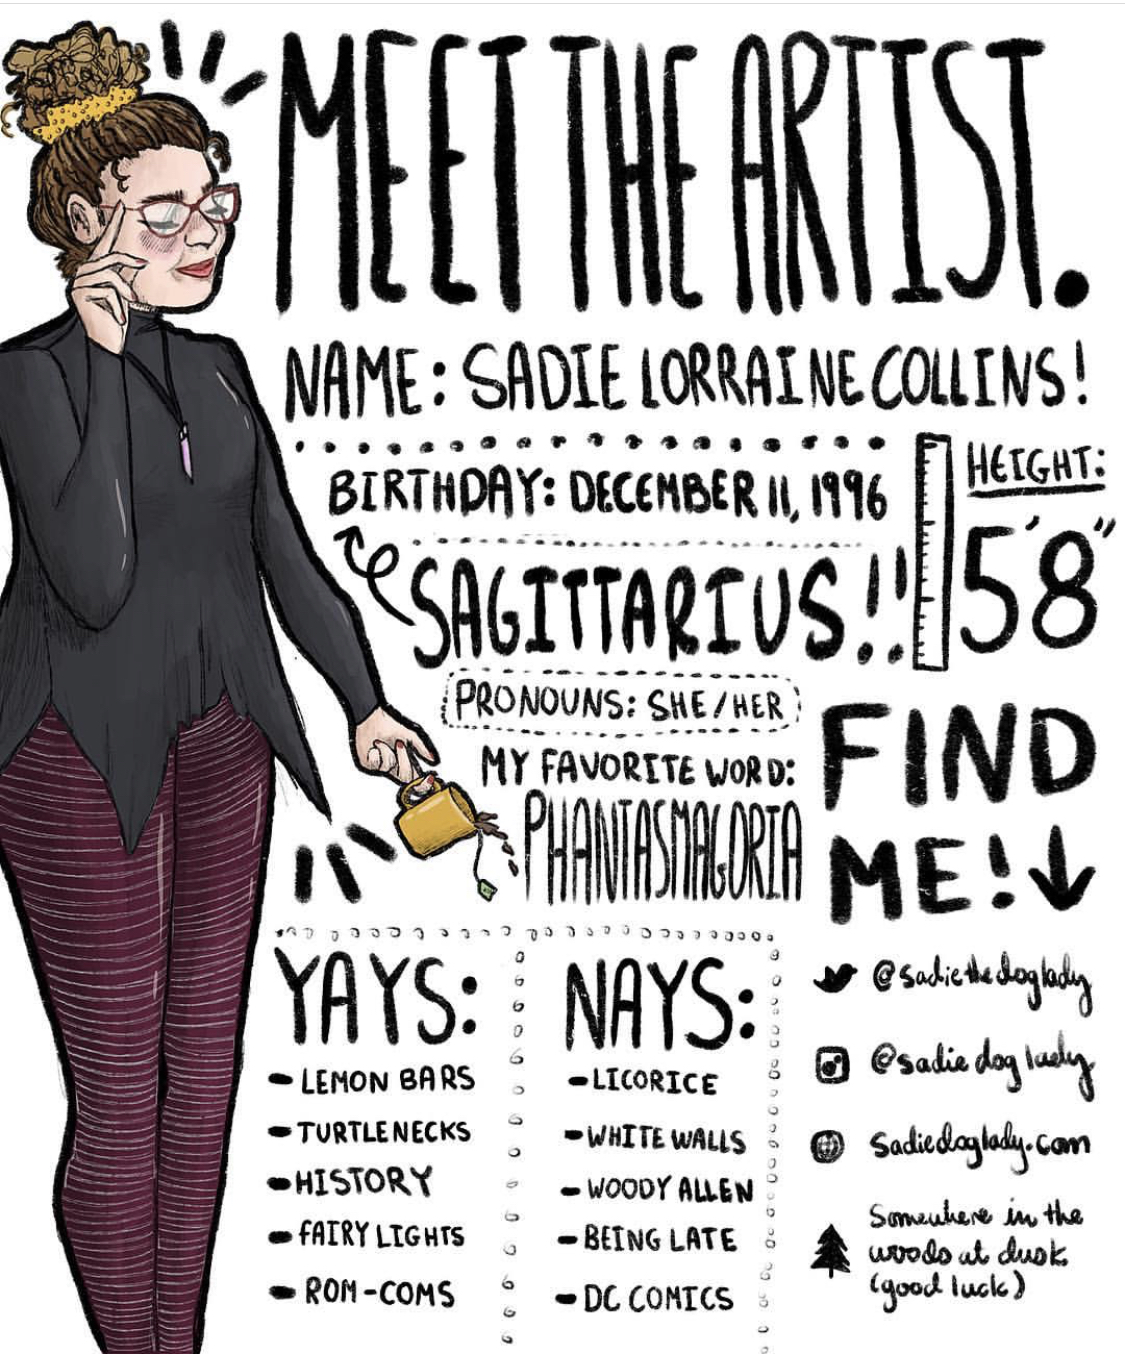 MEET THE ARTIST.
NAME: SADIE LORRAINE COLLINS!
BIRTHDAY: DECEMBER 11, 1996
SAGITTARIUS!!
HEIGHT:
5'8"
PRONOUNS: SHE/HER
MY FAVORITE WORD:
PHANTASMAGORIA
FIND
ME!↓
YAYS:
- LEMON BARS
- TURTLENECKS
- HISTORY
- FAIRY LIGHTS
- ROM-COMS
NAYS:
- LICORICE
- WHITE WALLS
- WOODY ALLEN
- BEING LATE
- DC COMICS
@sadiethedoglady
@sadiedoglady
Sadiedoglady.com
Somewhere in the
woods at dusk
(good luck)